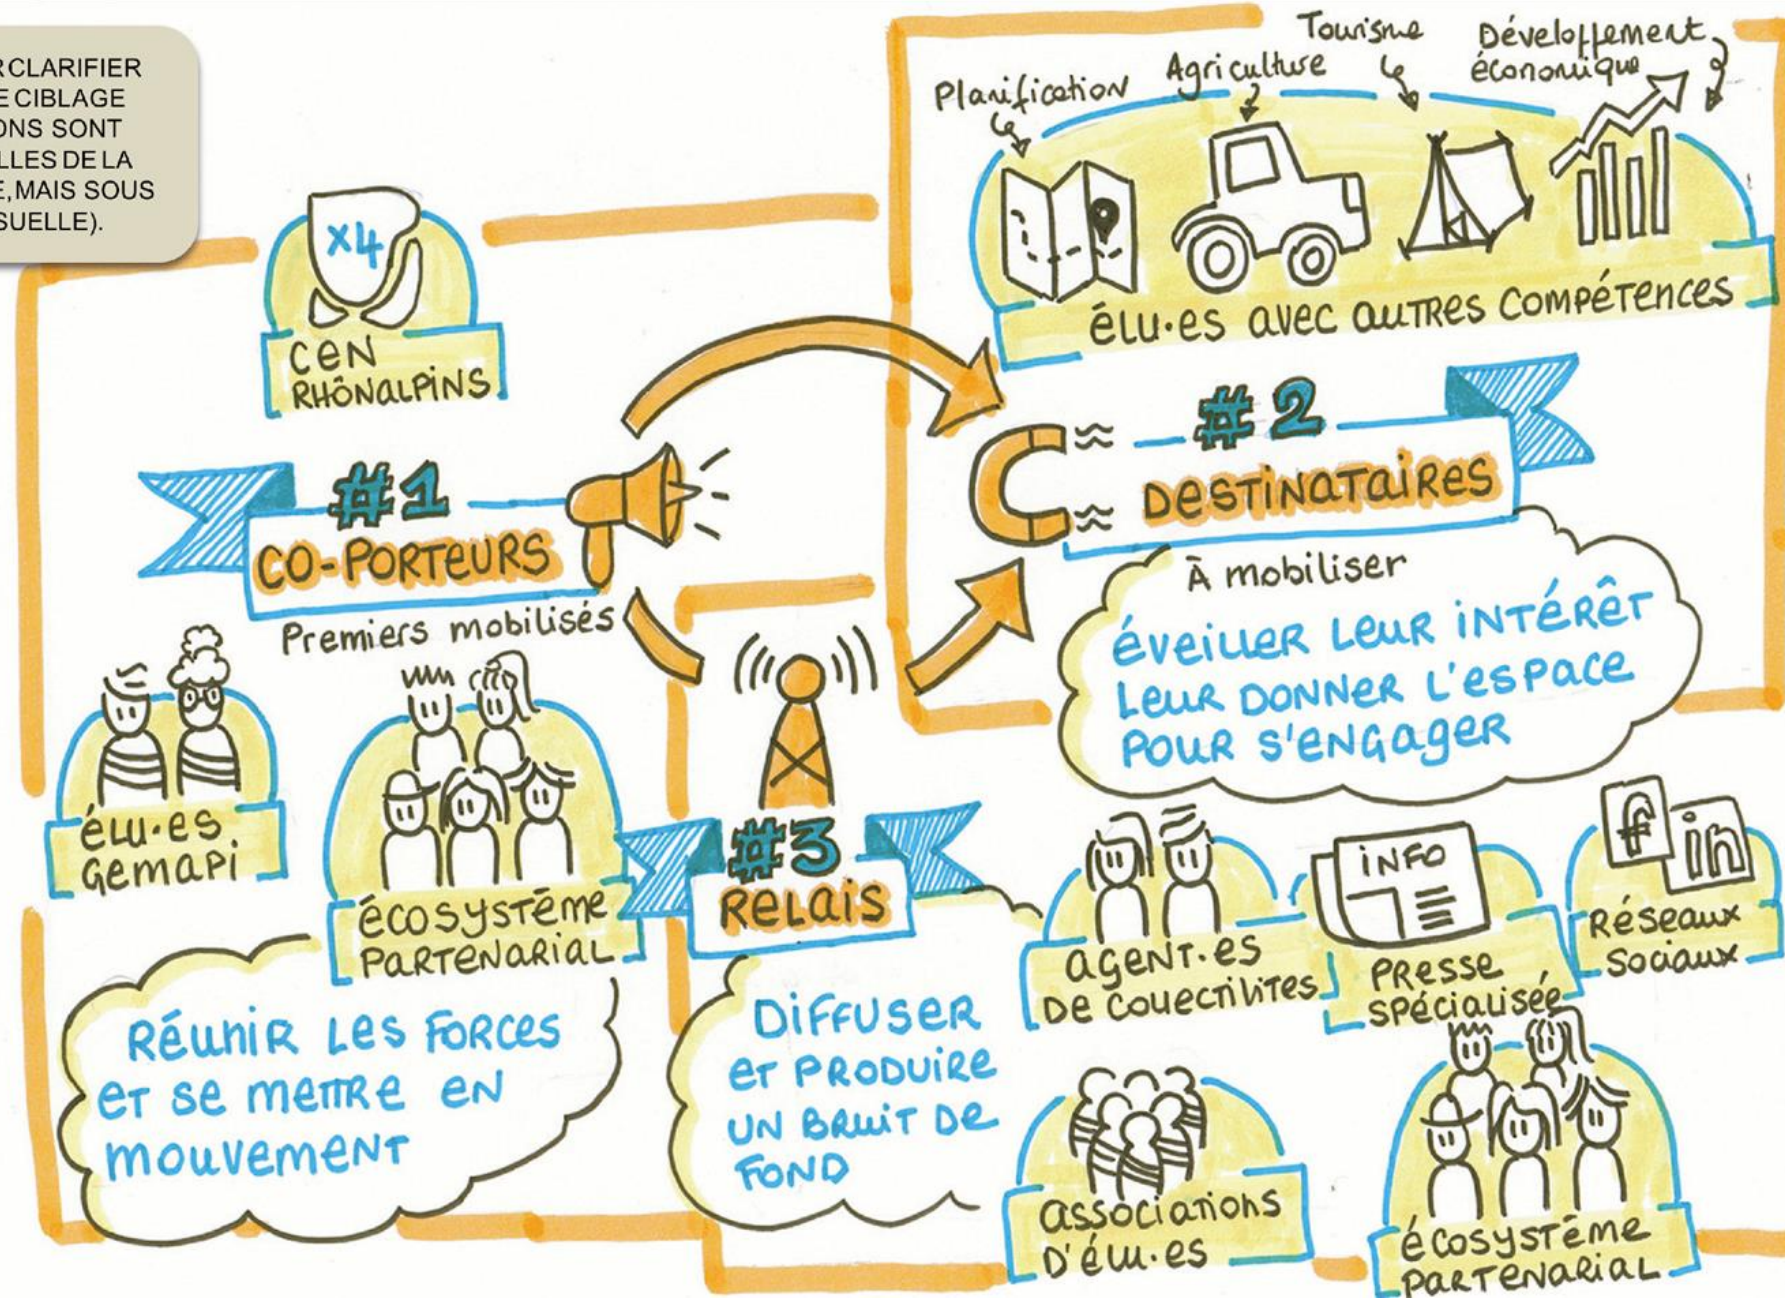 CLARIFIER
CIBLAGE
SONT
DE LA
, MAIS SOUS
x4
CEN
RHÔNALPINS
#1
CO-PORTEURS
Premiers mobilisés
élu·es
GEMAPI
écosystème
PARTENARIAL
Réunir les forces
et se mettre en
mouvement
Planification
Agriculture
Tourisme
Développement
économique
élu·es avec autres compétences
#2
Destinataires
À mobiliser
éveiller leur intérêt
leur donner l'espace
pour s'engager
#3
Relais
Diffuser
et produire
un bruit de
fond
agent·es
de collectivites
INFO
Presse
spécialisée
f
in
Réseaux
Sociaux
associations
d'élu·es
écosystème
partenarial